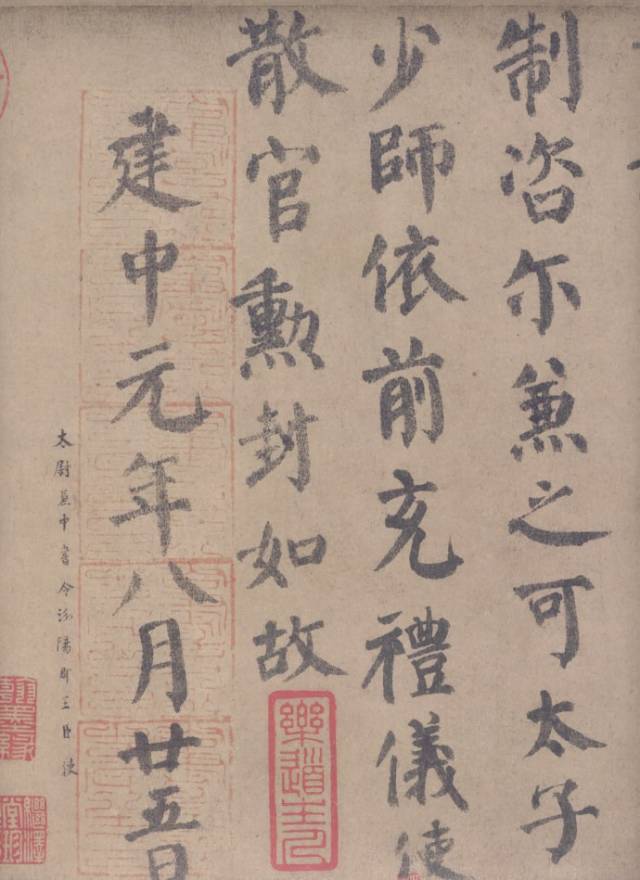 制咨尓兼之可太子
少師依前充禮儀使
散官勲封如故
建中元年八月廿五日
太尉兼中書令汾陽郡王臣 使